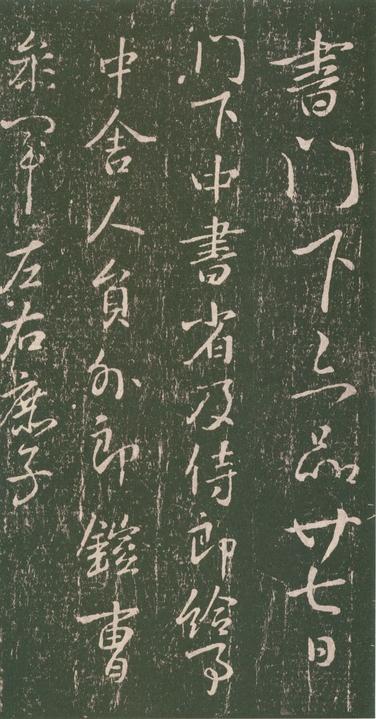 書門下三品廿七日
門下中書省及侍郎給事
中舍人員外郎鎧曹
參軍左右庶子